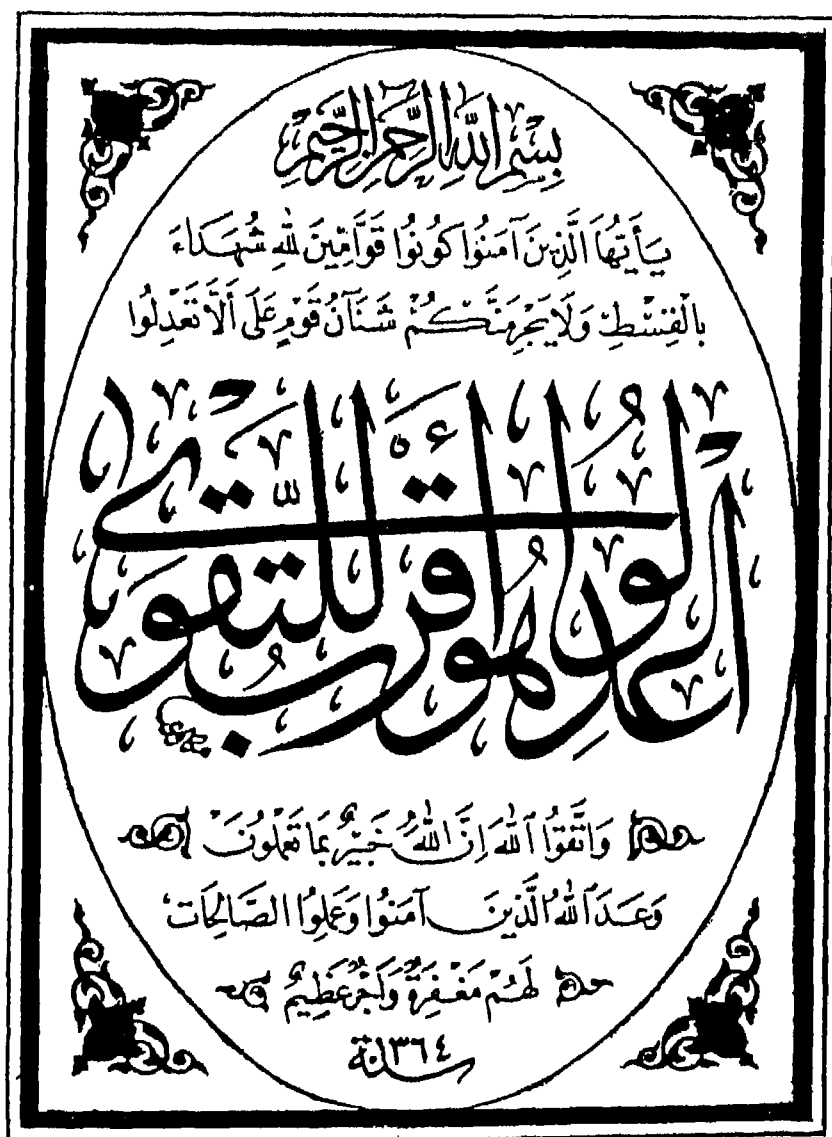 بِسْمِ اللَّهِ الرَّحْمَنِ الرَّحِيمِ
يَأَيُّهَا الَّذِينَ آمَنُوا كُونُوا قَوَّامِينَ لِلَّهِ شُهَدَاءَ
بِالْقِسْطِ وَلَا يَجْرِمَنَّكُمْ شَنَآنُ قَوْمٍ عَلَى أَلَّا تَعْدِلُوا
اعْدِلُوا هُوَ أَقْرَبُ لِلتَّقْوَى
وَاتَّقُوا اللَّهَ إِنَّ اللَّهَ خَبِيرٌ بِمَا تَعْمَلُونَ
وَعَدَ اللَّهُ الَّذِينَ آمَنُوا وَعَمِلُوا الصَّالِحَاتِ
لَهُمْ مَغْفِرَةٌ وَأَجْرٌ عَظِيمٌ
سنة ١٣٦٤